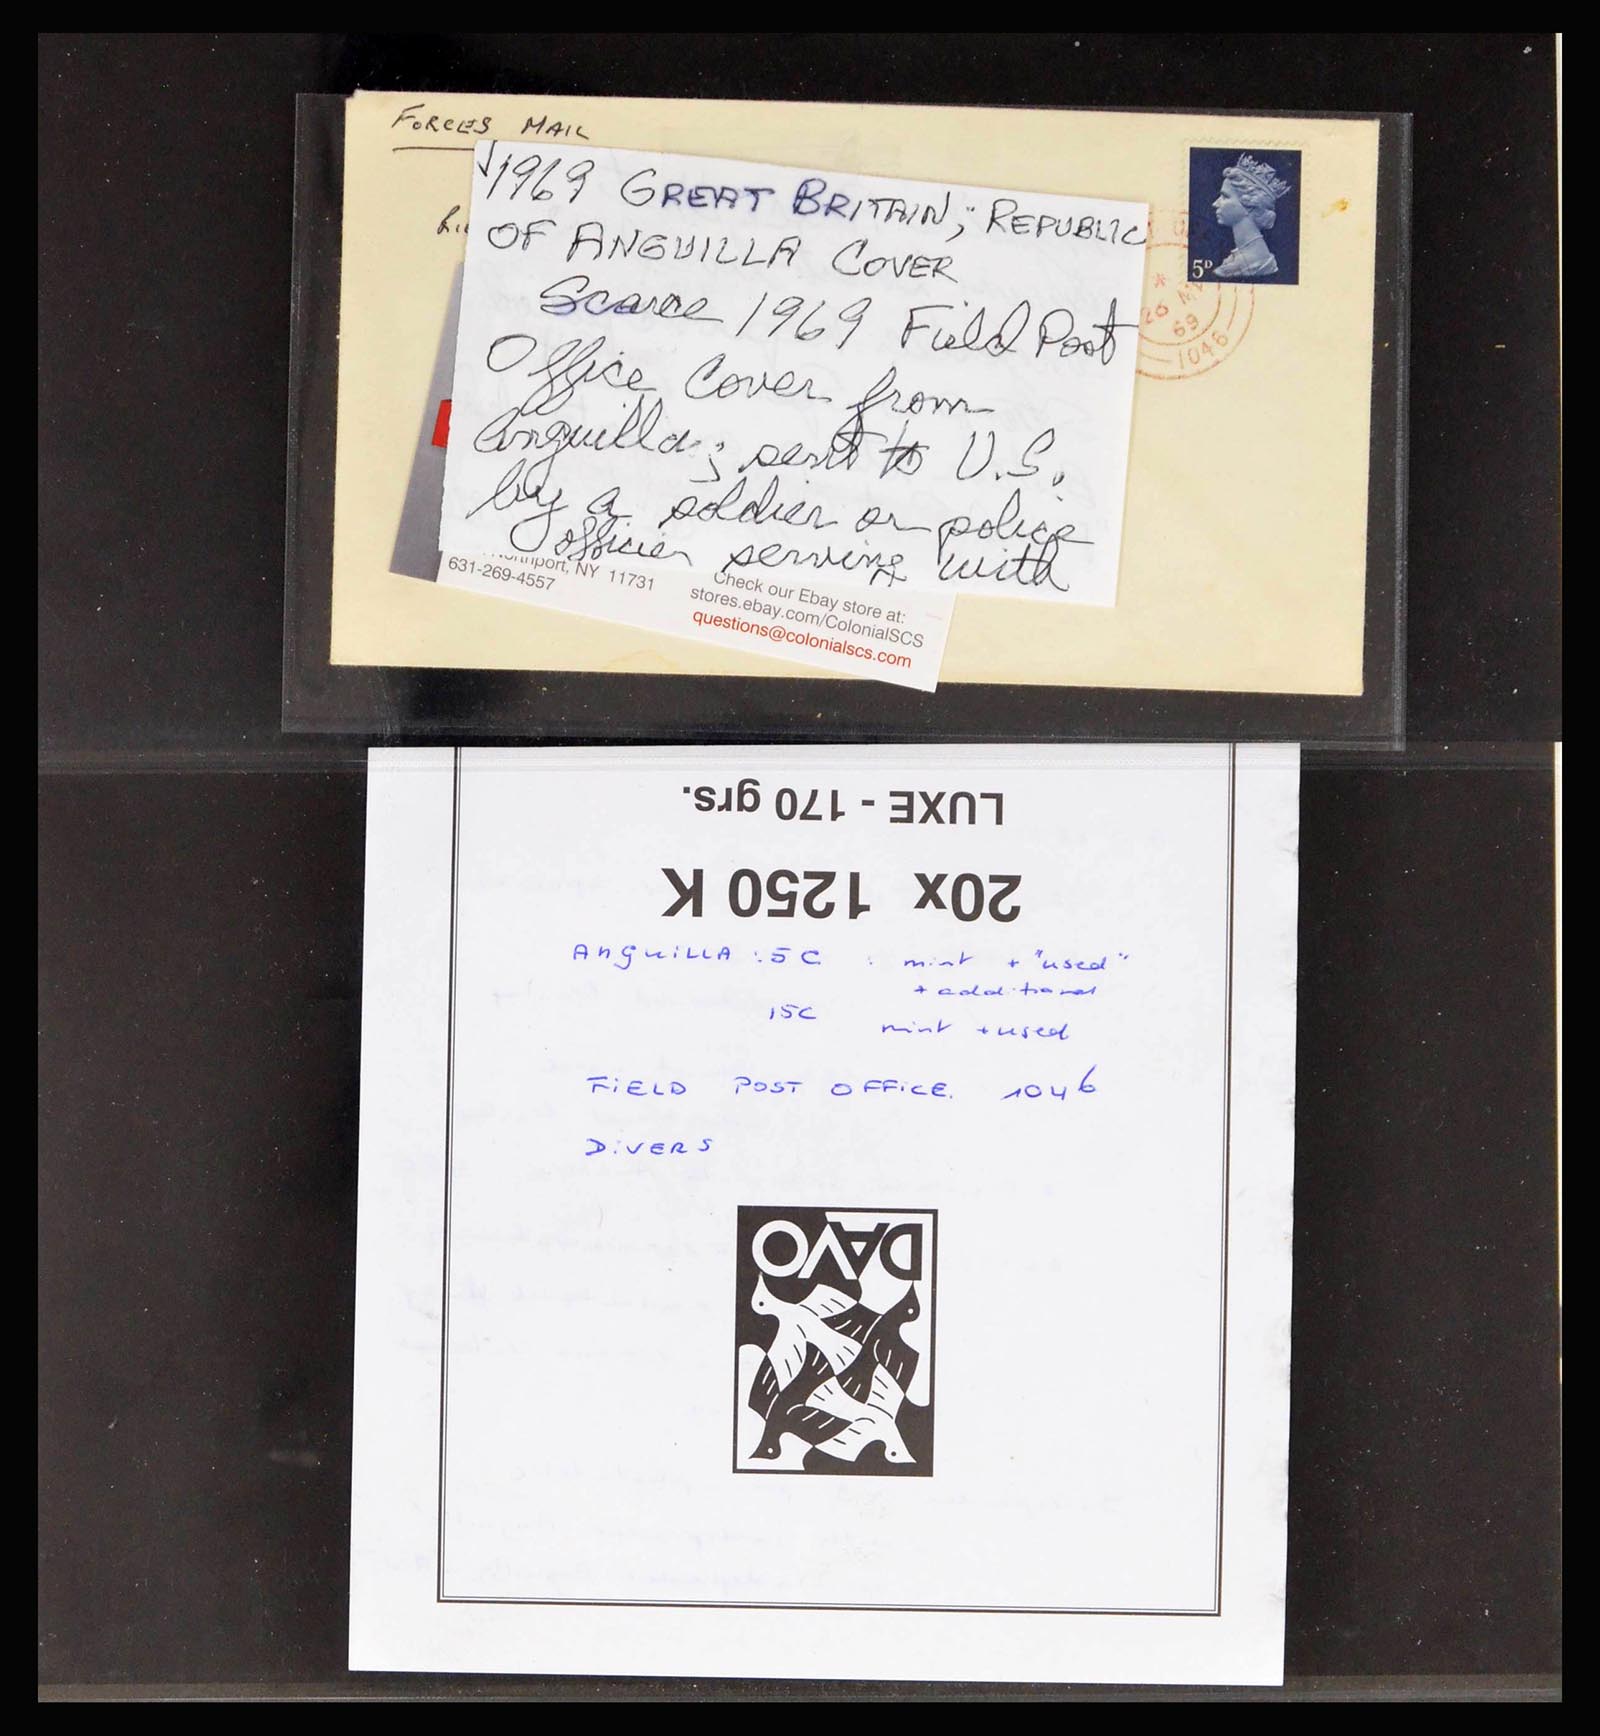 FORCES MAIL
1969 GREAT BRITAIN; REPUBLIC
OF ANGUILLA COVER
Scarce 1969 Field Post
Office Cover from
Anguilla; sent to U.S.
by a soldier or police
officer serving with
5D
26 MR
69
1046
Northport, NY 11731
631-269-4557
Check our Ebay store at:
stores.ebay.com/ColonialSCS
questions@colonialscs.com
LUXE - 170 grs.
20x 1250 K
ANGUILLA : 5C : mint + "used"
+ additional
15C mint + used
FIELD POST OFFICE. 1046
DIVERS
DAVO